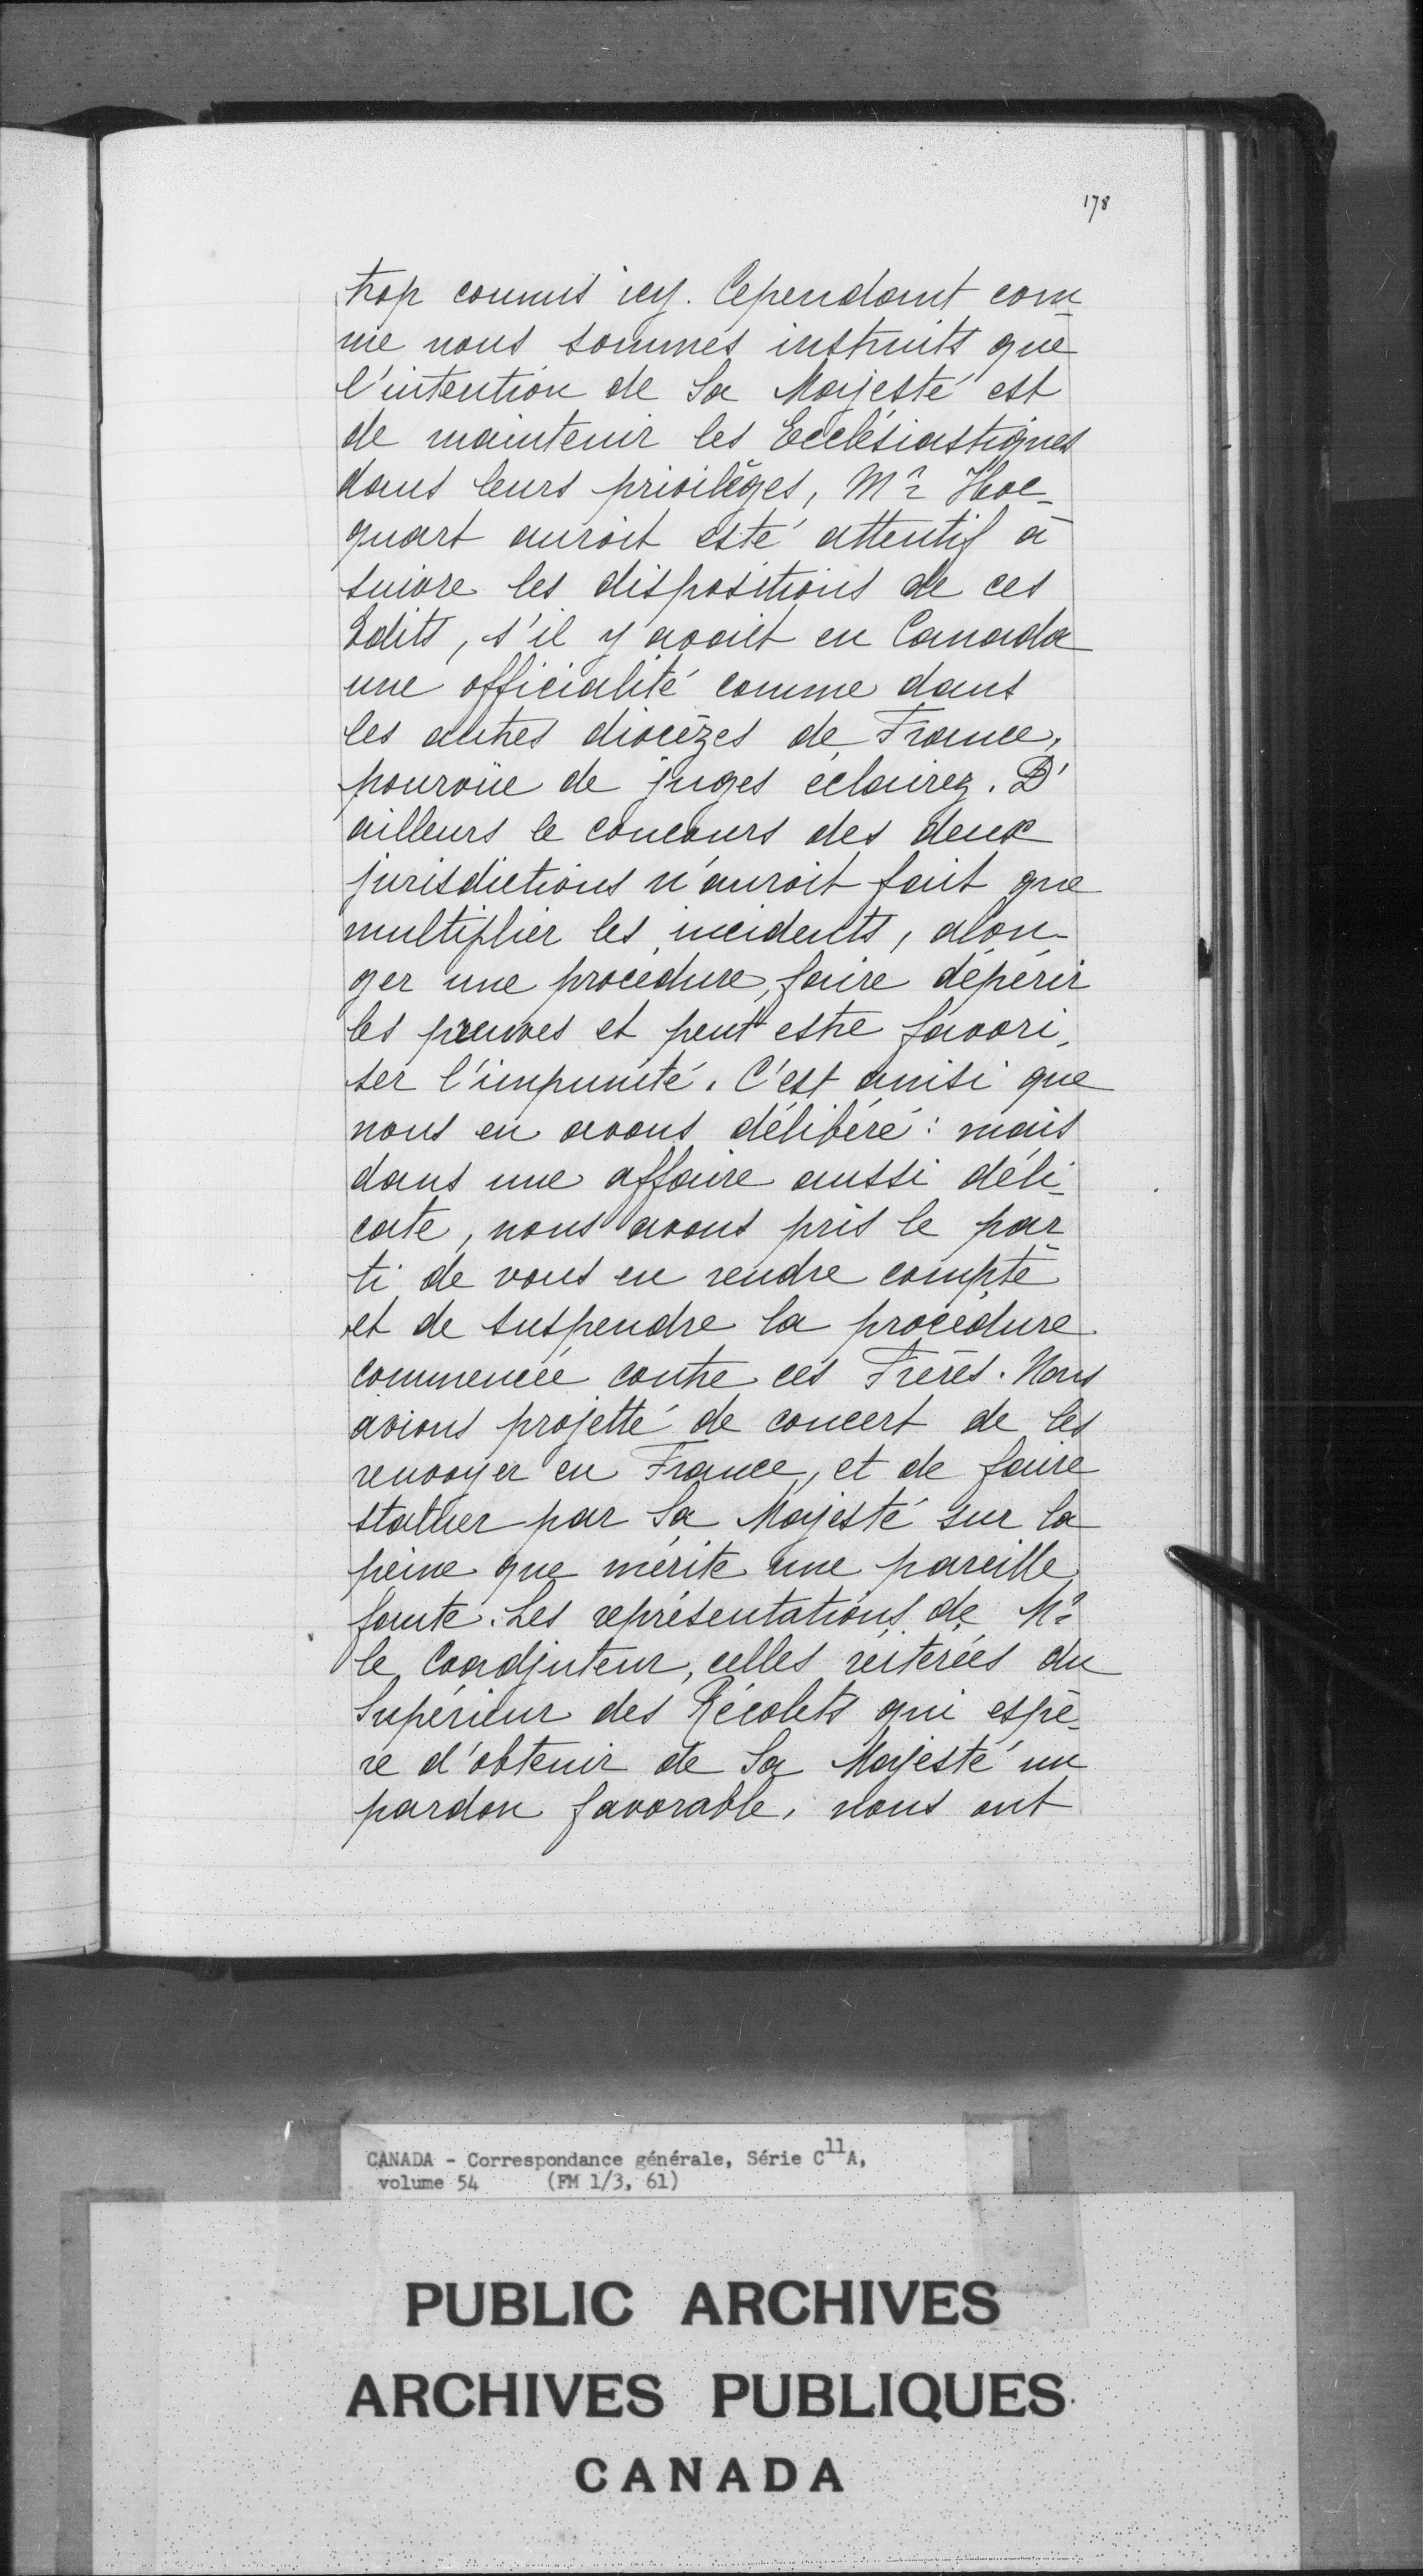 178
trop connus icy. Cependant com-
me nous sommes instruits que
l'intention de Sa Majesté est
de maintenir les Ecclésiastiques
dans leurs privilèges, Mr Hoc-
quart auroit esté attentif à
suivre les dispositions de ces
Edits, s'il y avoit en Canada
une officialité comme dans
les autres diocèzes de France,
pourvüe de juges éclairez. D'
ailleurs le concours des deux
jurisdictions n'auroit fait que
multiplier les incidents, alon-
ger une procédure, faire dépérir
les preuves et peut estre favori-
ser l'impunité. C'est ainsi que
nous en avons délibéré: mais
dans une affaire aussi déli-
cate, nous avons pris le par-
ti de vous en rendre compte
et de suspendre la procédure
commencée contre ces Frères. Nous
avions projetté de concert de les
renvoyer en France, et de faire
statuer par Sa Majesté sur la
peine que mérite une pareille
faute. Les représentations de Mr
le Coadjuteur, celles réiterées du
Supérieur des Récolets qui espè-
re d'obtenir de Sa Majesté un
pardon favorable, nous ont
CANADA - Correspondance générale, Série C11A,
volume 54 (FM 1/3, 61)
PUBLIC ARCHIVES
ARCHIVES PUBLIQUES
CANADA